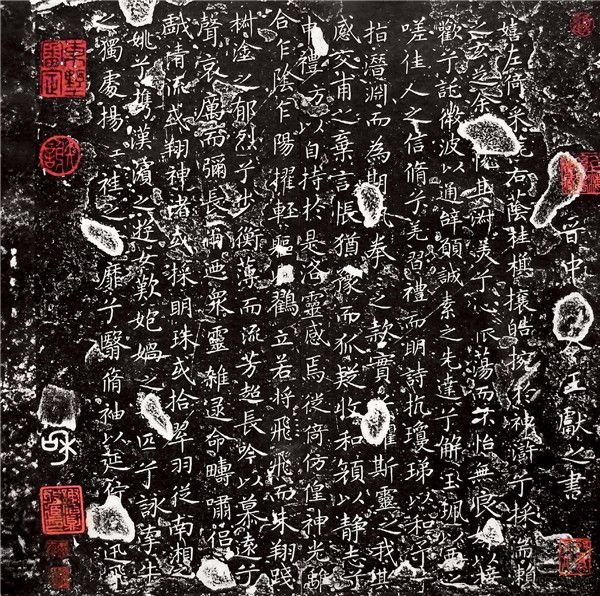 晉中令王獻之書
嬉左倚采旄右蔭桂旗攘皓捥於神滸兮採湍瀨
之玄芝余情悅其淑美兮心振蕩而不怡無良以接
歡兮託微波以通辭願誠素之先達兮解玉珮以要之
嗟佳人之信脩兮羌習禮而明詩抗瓊珶以和予兮
指潛淵而為期執拳之款實懼斯靈之我欺
感交甫之棄言悵猶豫而狐疑收和顏以靜志兮
申禮防以自持於是洛靈感焉徙倚仿偟神光離
合乍陰乍陽擢輕軀鶴立若將飛飛而未翔踐
椒塗之郁烈兮步衡薄而流芳超長吟以慕遠兮
聲哀厲而彌長爾迺眾靈雜遝命疇嘯侶
戲清流或翔神渚或採明珠或拾翠羽從南湘之
姚兮攜漢濱之遊女歎匏媧之匹兮詠牽牛
之獨處揚袿之靡兮翳脩袖以延佇迅飛